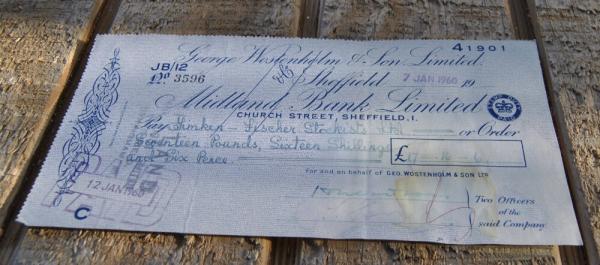 41901
George Wostenholm & Son. Limited.
JB/12
No. 3596
Sheffield 7 JAN 1960 19
Midland Bank Limited
CHURCH STREET, SHEFFIELD, I.
STAMP DUTY PAID
Pay Timken - Fischer Stockists Ltd or Order
Seventeen Pounds, Sixteen Shillings
and Six Pence
£17 16 6
For and on behalf of GEO. WOSTENHOLM & SON LTD
Two Officers
of the
said Company.
12 JAN 1960
PAID
C